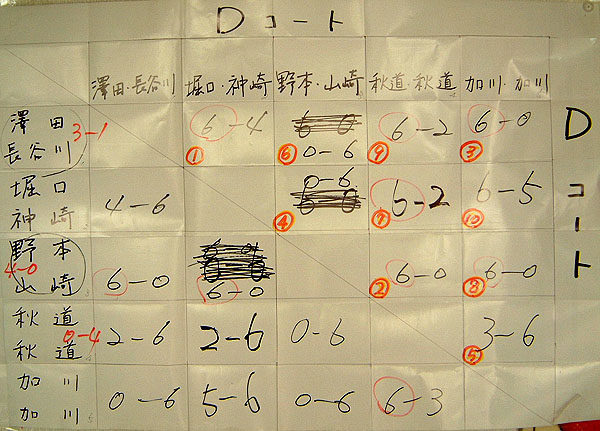 Dコート
澤田・長谷川 堀口・神崎 野本・山崎 秋道・秋道 加川・加川
澤田
長谷川 3-1 6-4 ① 0-6 ⑥ 6-2 ⑨ 6-0 ③
堀口
神崎 4-6 0-6 ④ 6-2 ⑦ 6-5 ⑩
野本
山崎 4-0 6-0 6-0 6-0 ② 6-0 ⑧
秋道
秋道 0-4 2-6 2-6 0-6 3-6 ⑤
加川
加川 0-6 5-6 0-6 6-3
Dコート